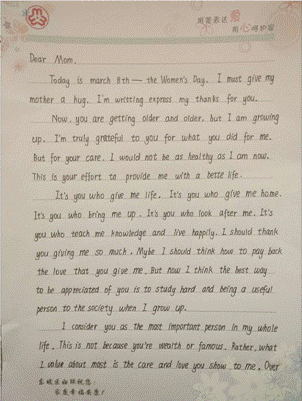 用爱表达爱
用心呵护家
Dear Mom,
Today is march 8th — the Women's Day. I must give my
mother a hug. I'm writting express my thanks for you.
Now, you are getting older and older, but I am growing
up. I'm truly grateful to you for what you did for me.
But for your care. I would not be as healthy as I am now.
This is your effort to provide me with a bette life.
It's you who give me life. It's you who give me home.
It's you who bring me up. It's you who look after me. It's
you who teach me knowledge and live happily. I should thank
you giving me so much. Mybe I should think how to pay back
the love that you give me. But now I think the best way
to be appreciated of you is to study hard and being a useful
person to the society when I grow up.
I consider you as the most important person in my whole
life. This is not because you're wealth or famous. Rather, what
I value about most is the care and love you show to me. Over